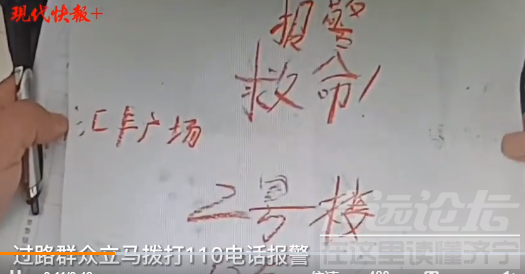 现代快报+
报警
救命!
汇丰广场
2号楼
过路群众立马拨打110电话报警
论坛
在这里读懂济宁
倍速